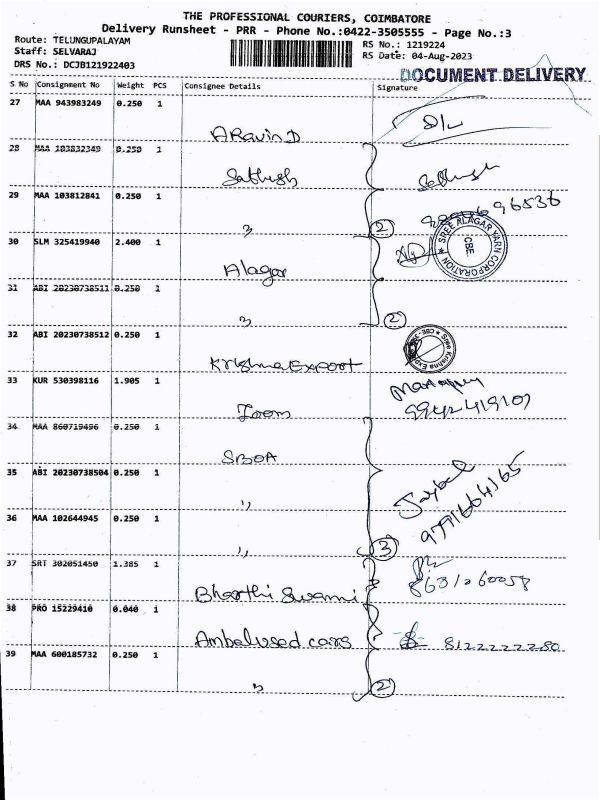 THE PROFESSIONAL COURIERS, COIMBATORE
Delivery Runsheet - PRR - Phone No.:0422-3505555 - Page No.:3
Route: TELUNGUPALAYAM
Staff: SELVARAJ
DRS No.: DCJB121922403
RS No.: 1219224
RS Date: 04-Aug-2023
DOCUMENT DELIVERY
S No Consignment No Weight PCS Consignee Details Signature
27 MAA 943983249 0.250 1
ARavinD
28 MAA 103832349 0.250 1
Sathish
29 MAA 103812841 0.250 1
" 2
30 SLM 325419940 2.400 1
SREE ALAGAR YARN CORPORATION ★ CBE
Alagar
31 ABI 20230738511 0.250 1
" 2
32 ABI 20230738512 0.250 1
Krishna Export
33 KUR 530398116 1.905 1
Zoom
34 MAA 860719496 0.250 1
SBOA
35 ABI 20230738504 0.250 1
"
36 MAA 102644945 0.250 1
" 3
37 SRT 302051450 1.385 1
Bharthi Swami
38 PRO 15229410 0.040 1
Ambal used cars
39 MAA 600185732 0.250 1
" 2